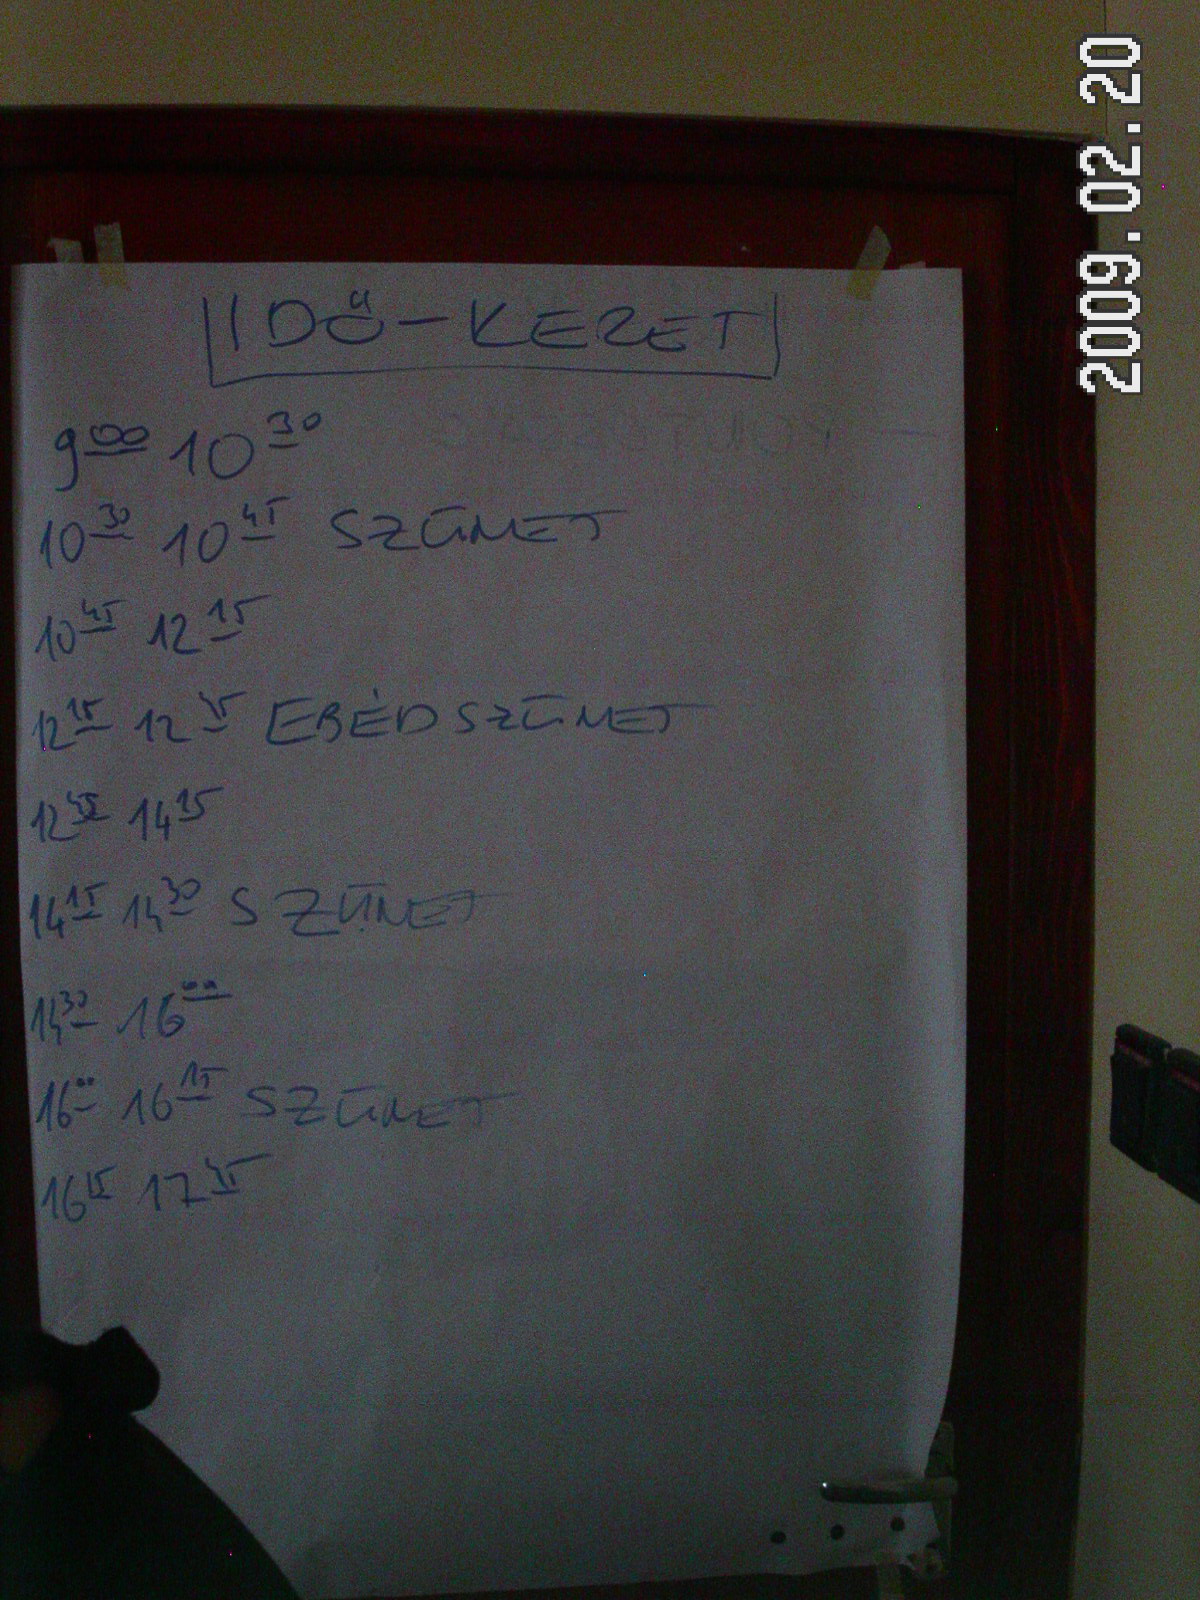 IDŐ-KERET
9 00 10 30
10 30 10 45 SZÜNET
10 45 12 15
12 15 12 45 EBÉDSZÜNET
12 45 14 15
14 15 14 30 SZÜNET
14 30 16 00
16 00 16 15 SZÜNET
16 15 17 45
2009.02.20